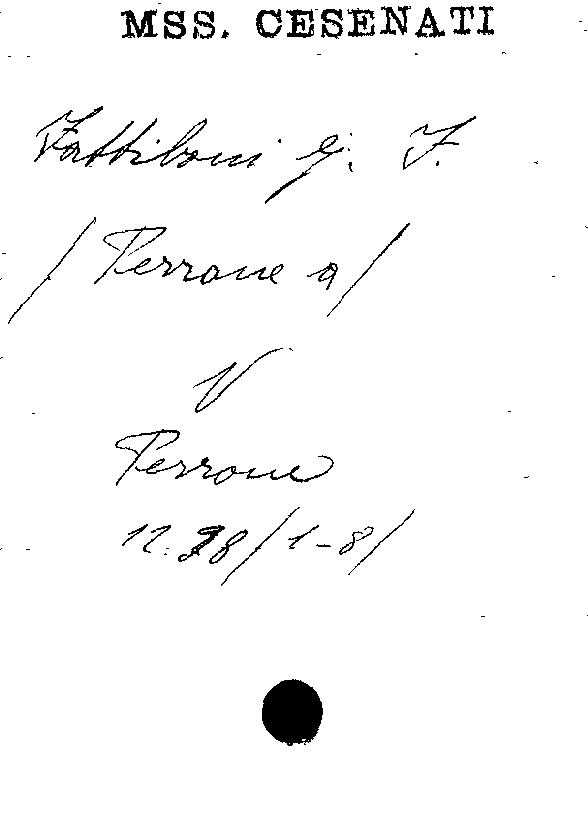 MSS. CESENATI
Fattiboni G. F.
/ Perrone a /
V
Perrone
12. 28/1-8/